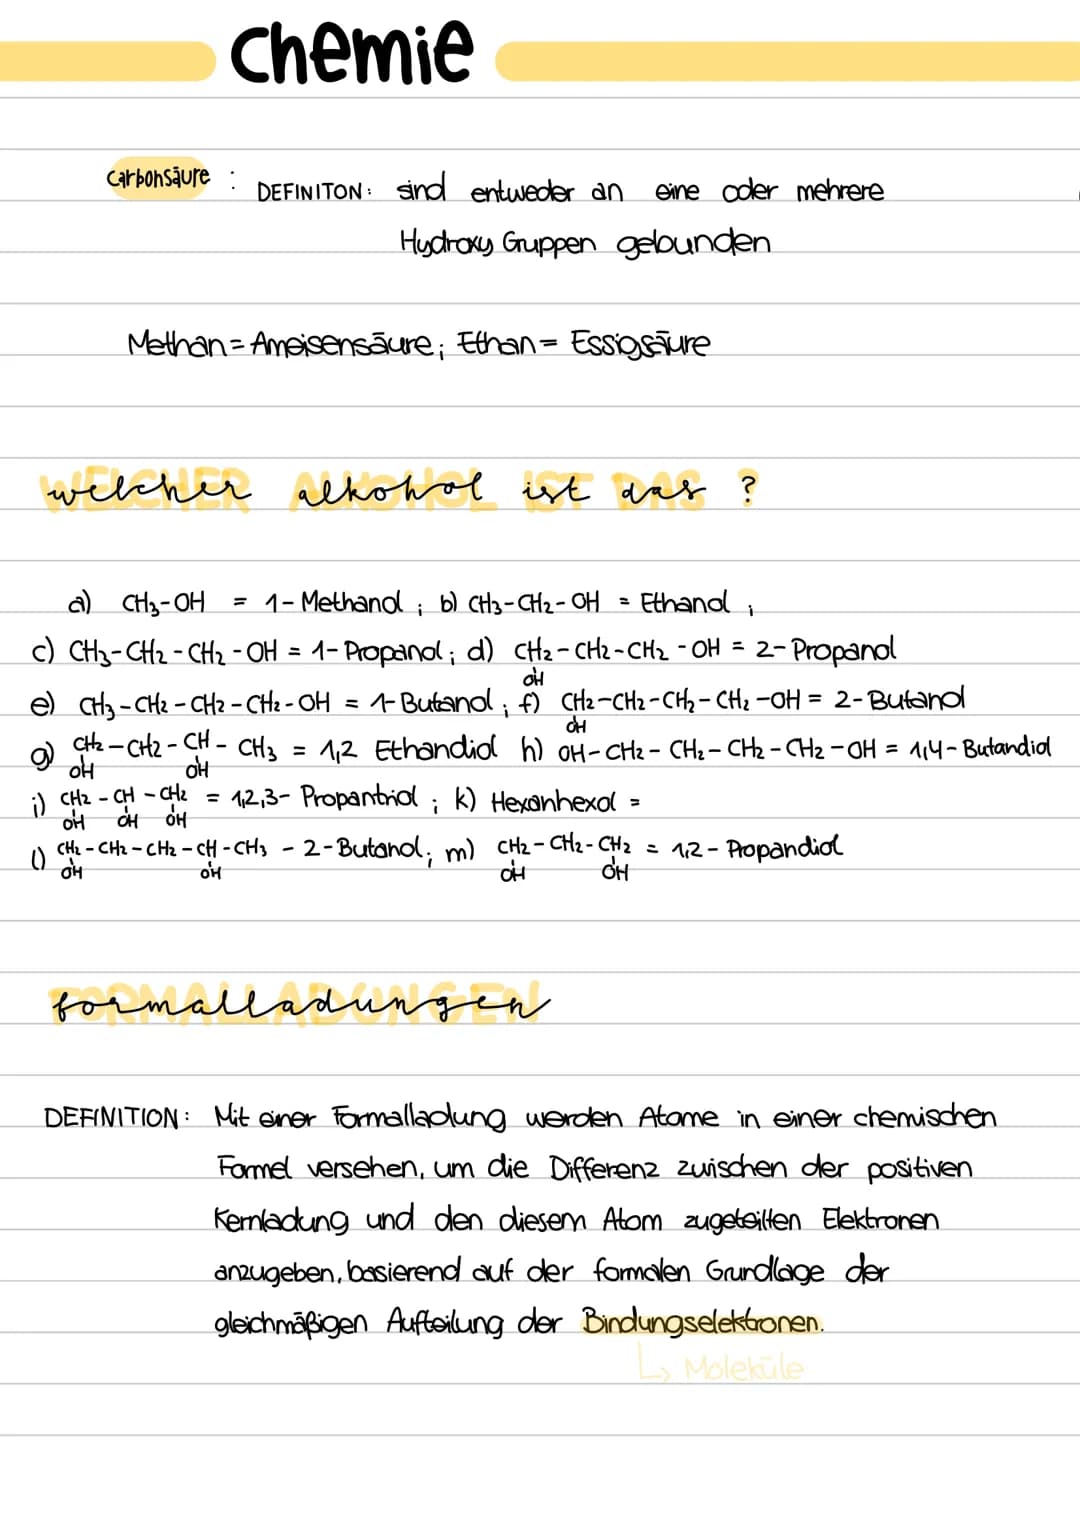 Chemie
Carbonsäure : DEFINITON: sind entweder an eine oder mehrere
Hydroxy Gruppen gebunden
Methan = Ameisensäure; Ethan = Essigsäure
WELCHER ALKOHOL IST DAS ?
a) CH3-OH = 1-Methanol ; b) CH3-CH2-OH = Ethanol ;
c) CH3-CH2-CH2-OH = 1-Propanol ; d) CH2-CH2-CH2-OH = 2-Propanol
OH
e) CH3-CH2-CH2-CH2-OH = 1-Butanol ; f) CH2-CH2-CH2-CH2-OH = 2-Butanol
OH
g) CH2-CH2-CH-CH3 = 1,2 Ethandiol h) OH-CH2-CH2-CH2-CH2-OH = 1,4-Butandiol
OH OH
i) CH2-CH-CH2 = 1,2,3-Propantriol ; k) Hexanhexol =
OH OH OH
l) CH2-CH2-CH2-CH-CH3 - 2-Butanol; m) CH2-CH2-CH2 = 1,2-Propandiol
OH OH OH OH
FORMALLADUNGEN
DEFINITION: Mit einer Formalladung werden Atome in einer chemischen
Formel versehen, um die Differenz zwischen der positiven
Kernladung und den diesem Atom zugeteilten Elektronen
anzugeben, basierend auf der formalen Grundlage der
gleichmäßigen Aufteilung der Bindungselektronen.
↳ Moleküle